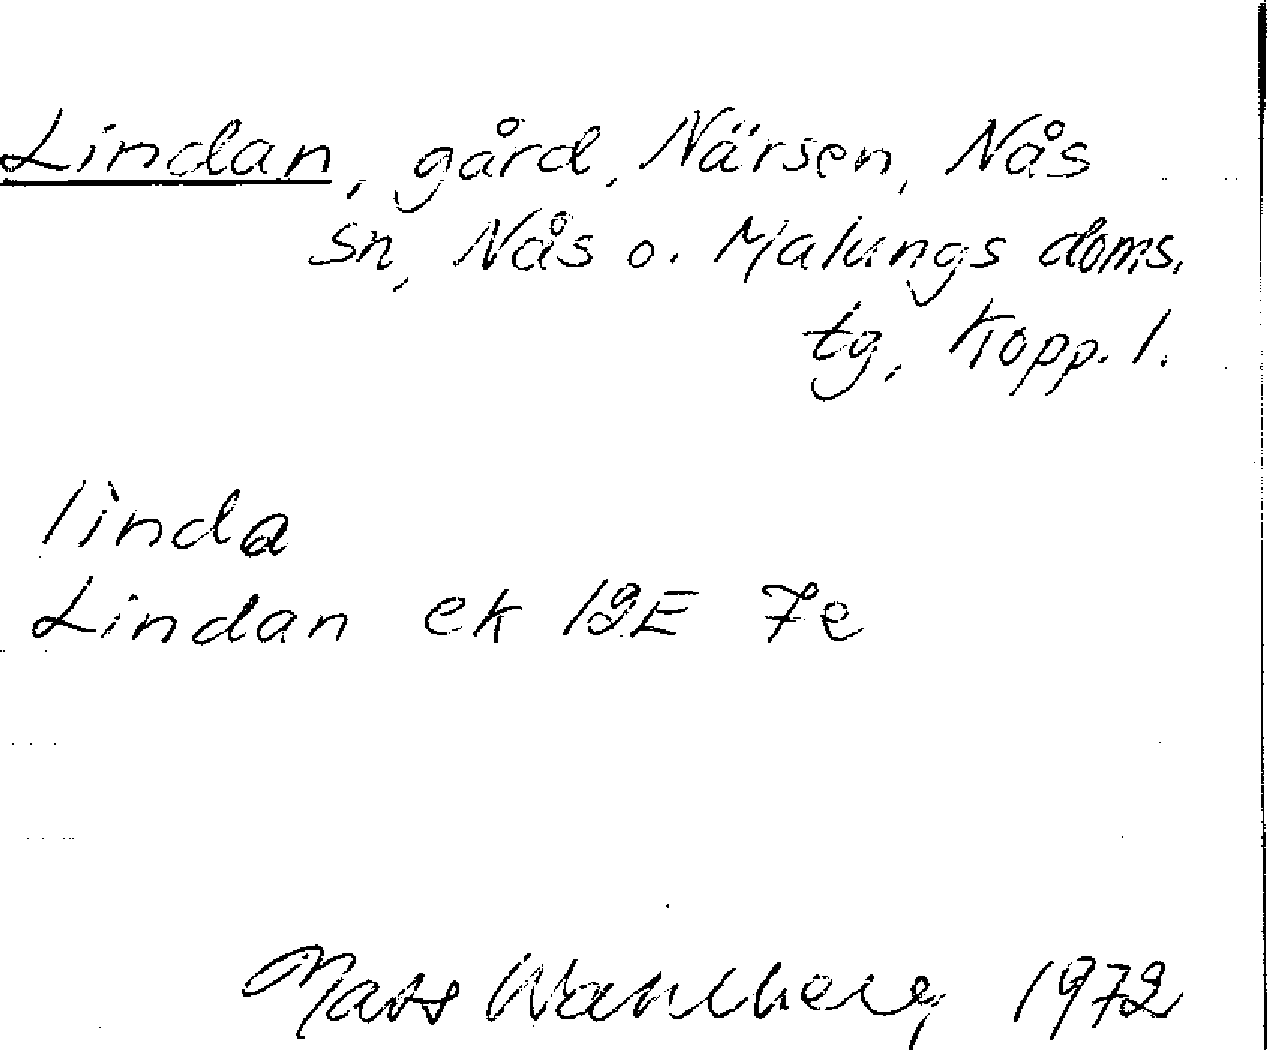 Lindan, gård, Närsen, Nås
sn, Nås o. Malungs doms.
tg, Kopp. l.
lìnda
Lindan ek 12E 7e
Mats Wahlberg 1972